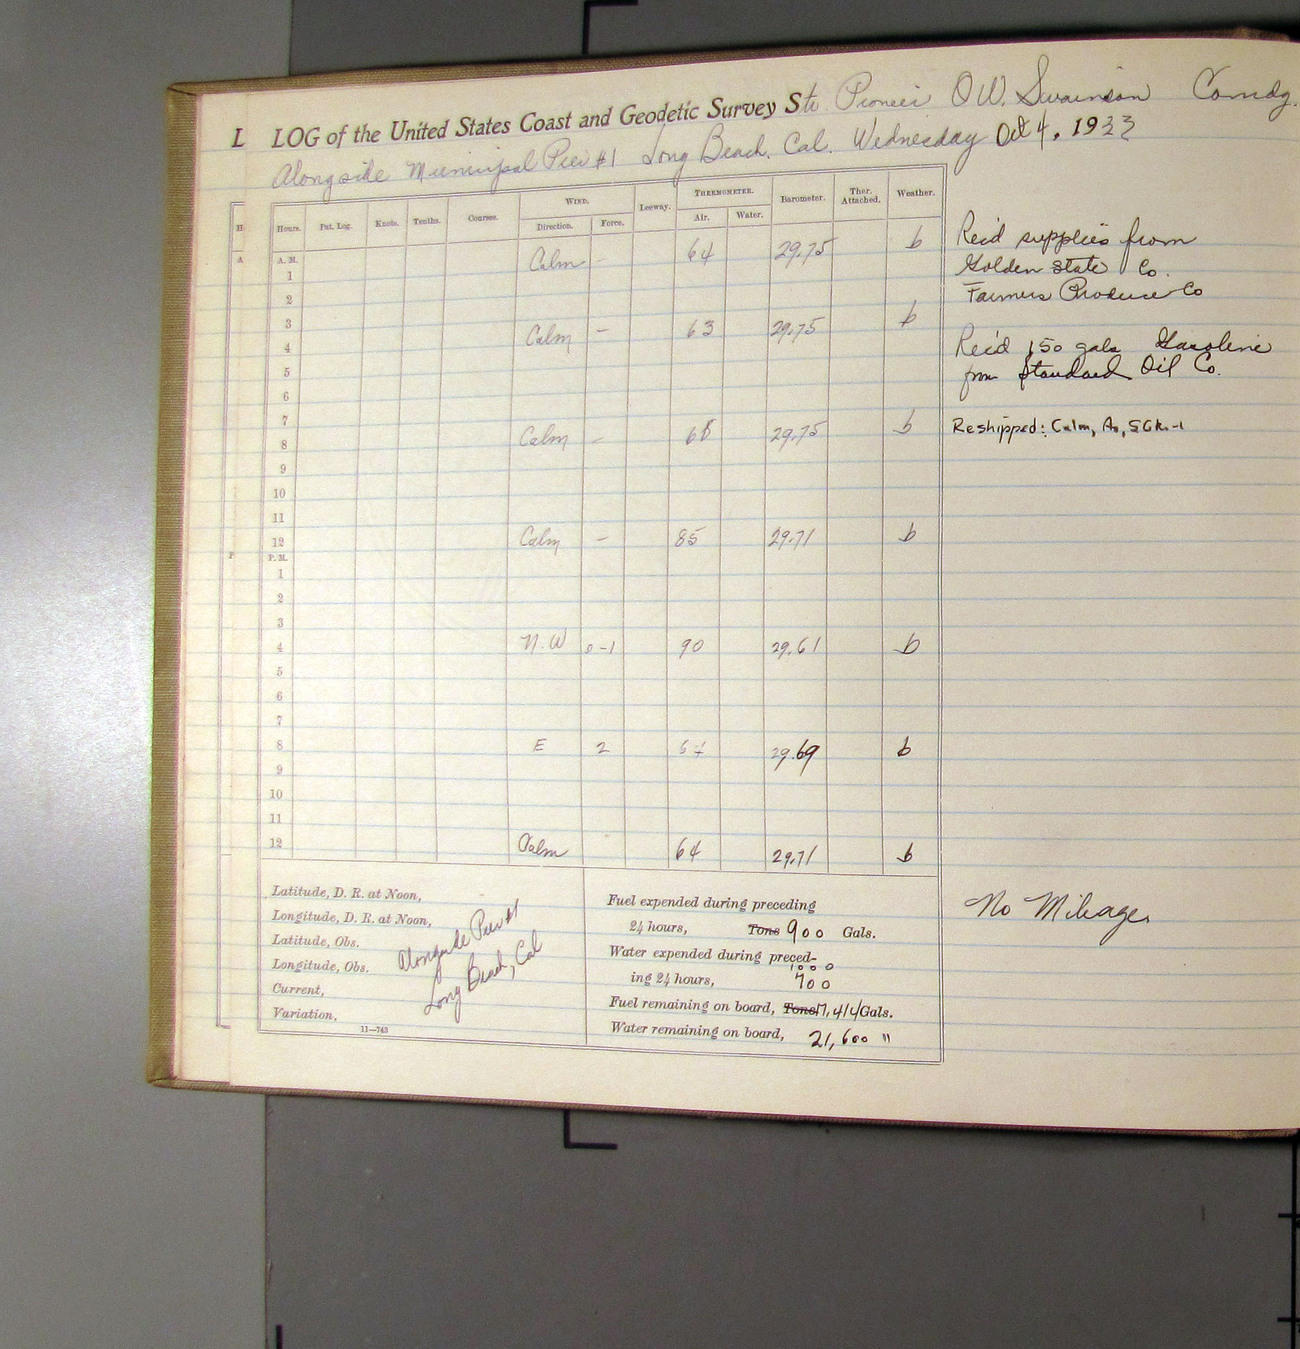 L LOG of the United States Coast and Geodetic Survey Str Pioneer O.W. Swainson Comdg.
Alongside Municipal Pier #1 Long Beach, Cal. Wednesday Oct 4, 1933
H Hours. Pat. Log. Knots. Tenths. Courses. WIND. Direction. Force. Leeway. THERMOMETER. Air. Water. Barometer. Ther. Attached. Weather.
A A. M. Calm - 64 29.75 b
1
2
3
4 Calm - 63 29.75 b
5
6
7
8 Calm - 29.75 b
9
10
11
12 Calm - 85 29.71 b
P P. M.
1
2
3
4 N.W 0-1 90 29.61 b
5
6
7
8 E 2 29.69 b
9
10
11
12 Calm 64 29.71 b
Rec'd supplies from
Golden State Co.
Farmers Produce Co
Rec'd 150 gals Gasoline
from Standard Oil Co.
Reshipped:
No Mileage
Latitude, D. R. at Noon,
Longitude, D. R. at Noon,
Latitude, Obs.
Longitude, Obs.
Current,
Variation,
Alongside Pier #1
Long Beach, Cal
11—743
Fuel expended during preceding
24 hours, Tons 900 Gals.
Water expended during preced-
1000
ing 24 hours, 700
Fuel remaining on board, Tons 17,414 Gals.
Water remaining on board, 21,600 "